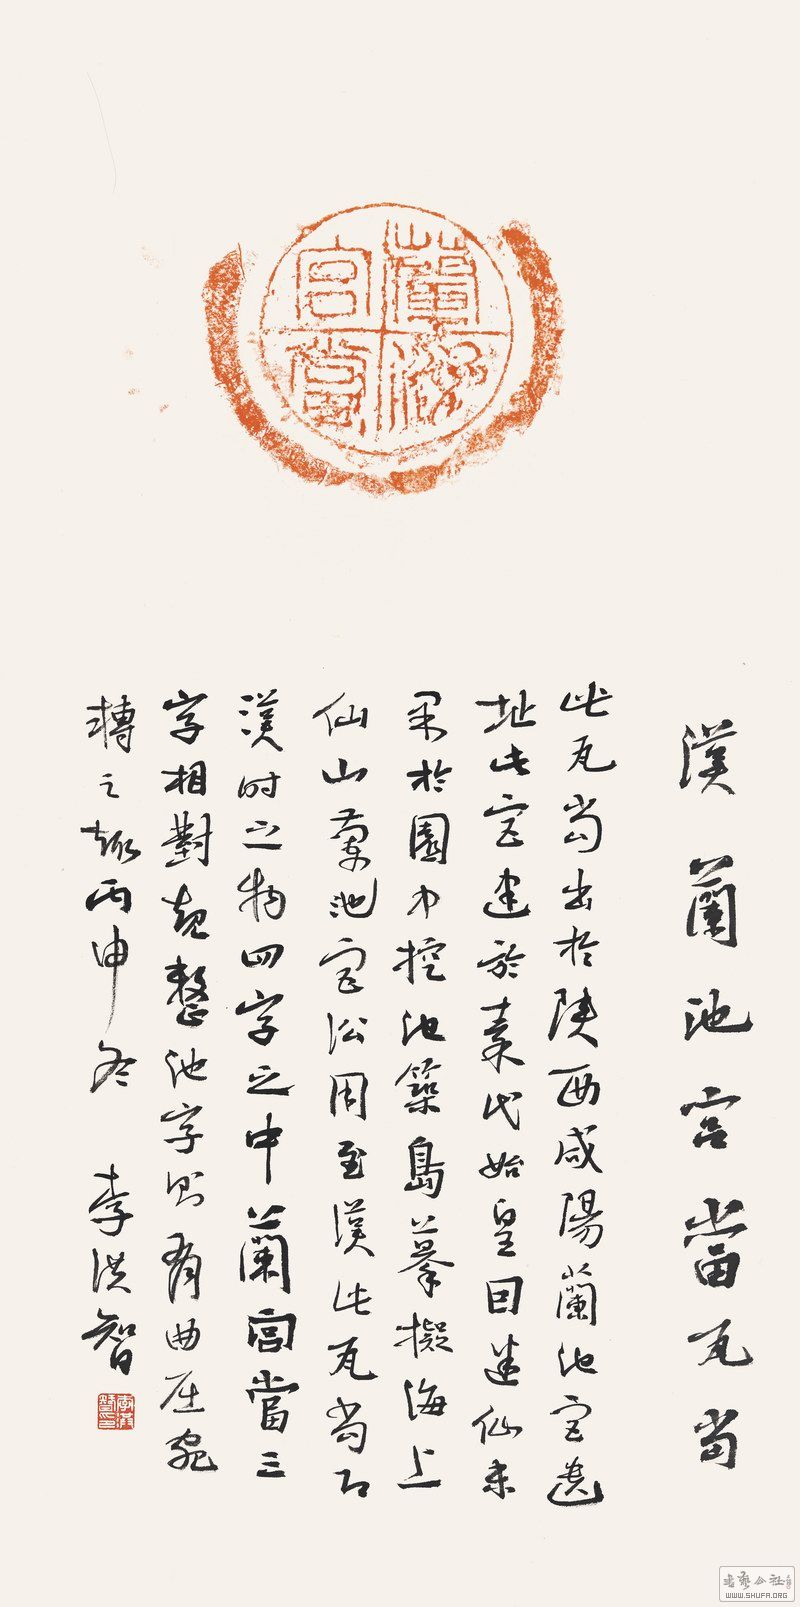 蘭池
宮當
漢蘭池宮當瓦當
此瓦當出於陝西咸陽蘭池宮遺
址此宮建於秦代始皇因迷仙未
果於園中挖池築島摹擬海上
仙山蘭池宮沿用至漢此瓦當
漢時之物四字之中蘭宮當三
字相對規整池字則有曲屈宛
轉之趣丙申冬 李洪智
書藝公社
WWW.SHUFA.ORG